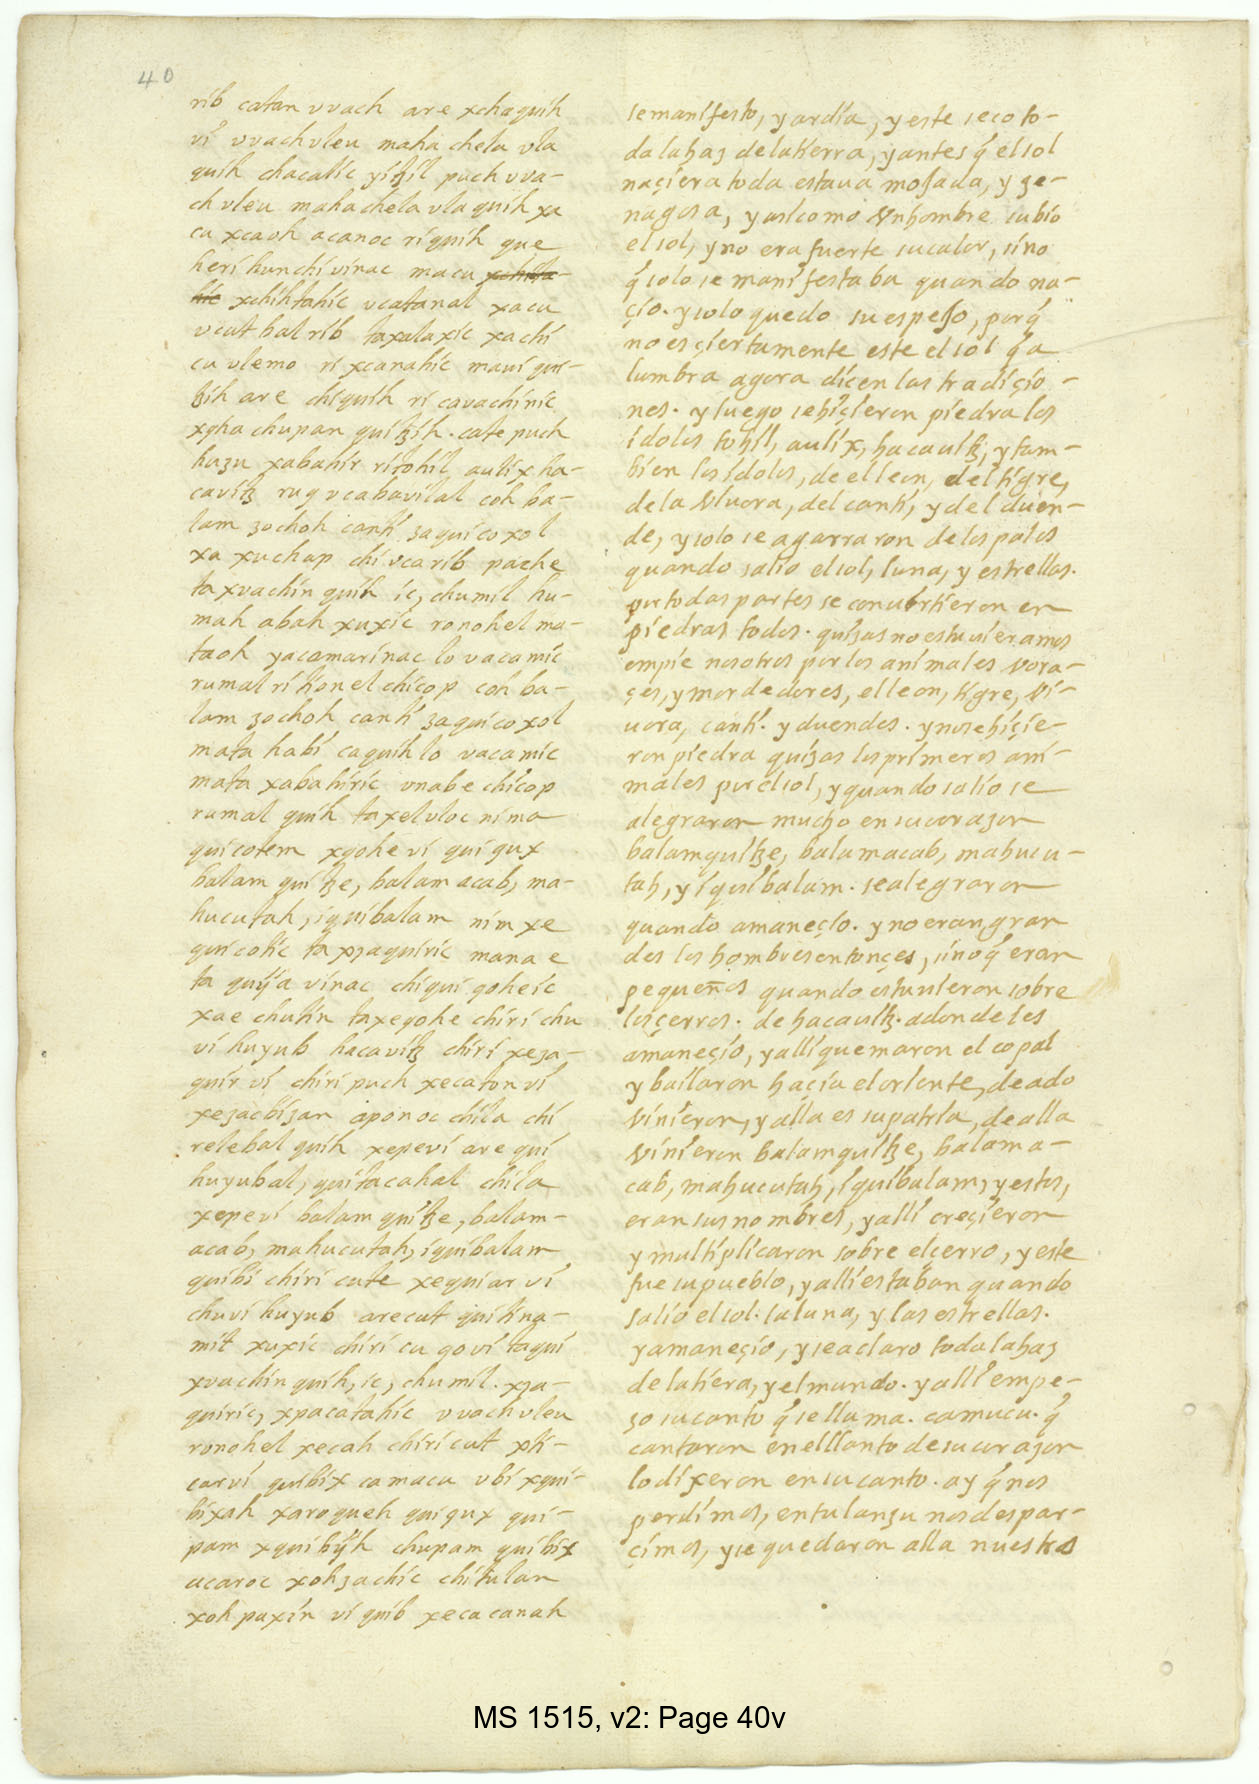 40
rib catan vvach are xchaquih
vi vvachuleu maha chela vla
quih chacalic yitzil puch vva-
ch vleu mahachela vla quih xa
cu xcaoh acanoc ri quih que
heri hunchi vinac macu
xchihtahic vcatanal xacu
vcut bal rib taxalaxic xachi
cu vlemo ri xcanahic maui qui-
tzih are chiquih ri cavachinic
xcha chupan quitzih. cate puch
huzu xabahir ri tohil auilix ha-
cavitz ruq vcabavilal coh ba-
lam zochoh canti zaquicoxol
xa xuchap chi vcarib pache
taxvachin quih ic, chumil hu-
mah abah xuxic ronohel ma-
taoh yacamarinac lo vacamic
rumal ri tionel chicop coh ba-
lam zochoh canti zaquicoxol
mata habi caquih lo vacamic
mata xabahiric vnabe chicop
rumal quih taxel vloc nima
quicotem xqohe vi qui qux
balam quitze, balam acab, ma-
hucutah, iquibalam nim xe
quicotic ta xzaquiric mana e
ta quiya vinac chiqui qoheic
xae chutin taxeqohe chiri chu
vi huyub hacavitz chiri xeza-
quir vi chiri puch xecaton vi
xezacbizan aponoc chila chi
relebal quih xepevi are qui
huyubal, quitacahal chila
xepevi balam quitze, balam-
acab, mahucutah, iquibalam
quibi chiri cute xequiar vi
chuvi huyub arecut quitina-
mit xuxic chiri cu qovi taqui
xvachin quih, ic, chumil. xza-
quiric, xpacatahic vvach vleu
ronohel xecah chiri cut xti-
carvi quibix camacu vbi xqui-
bixah xaroqueh qui qux qui-
pam xquibijh chupam quibix
acaroc xohzachic chi tulan
xoh paxin vi quib xecacanah
se manifesto, y ardia, y este seco to-
da la haz de la tierra, y antes q̃ el sol
naçiera toda estaua mojada, y ze-
nagosa, y asi como vn hombre subio
el sol, y no era fuerte su calor, sino
q̃ solo se manifestaba quando na-
çio. y solo quedo su espejo, porq̃
no es çiertamente este el sol q̃ a
lumbra agora dicen las tradiçio-
nes. y luego se hiçieron piedra los
idolos tohil, auilix, hacauitz, y tam-
bien los idolos, de el leon, del tigre,
de la viuora, del canti, y del duen-
de, y solo se agarraron de los palos
quando salio el sol, luna, y estrellas.
por todas partes se convirtieron en
piedras todos. quizas no estuuieramos
empie nosotros por los animales vora-
çes, y mordedores, el leon, tigre, vi-
uora, canti. y duendes. y no se hiçie-
ron piedra quizas los primeros ani-
males por el sol, y quando salio se
alegraron mucho en su corazon
balamquitze, balamacab, mahucu-
tah, y iquibalam. se alegraron
quando amaneçio. y no eran gran
des los hombres entonçes, sino q̃ eran
pequeños quando estuuieron sobre
los çerros. de hacauitz. adonde les
amaneçio, y alli quemaron el copal
y bailaron haçia el oriente, de ado
vinieron, y alla es su patria, de alla
vinieron balamquitze, balama-
cab, mahucutah, iquibalam, y estos,
eran sus nombres, y alli creçieron
y multiplicaron sobre el çerro, y este
fue su pueblo, y alli estaban quando
salio el sol. la luna, y las estrellas.
y amaneçio, y se aclaro toda la haz
de la tiera, y el mundo. y alli empe-
zo su canto q̃ se llama. camucu. q̃
cantaron en el llanto de su corazon
lo dixeron en su canto. ay q̃ nos
perdimos, en tulanzu nos despar-
çimos, y se quedaron alla nuestros
MS 1515, v2: Page 40v